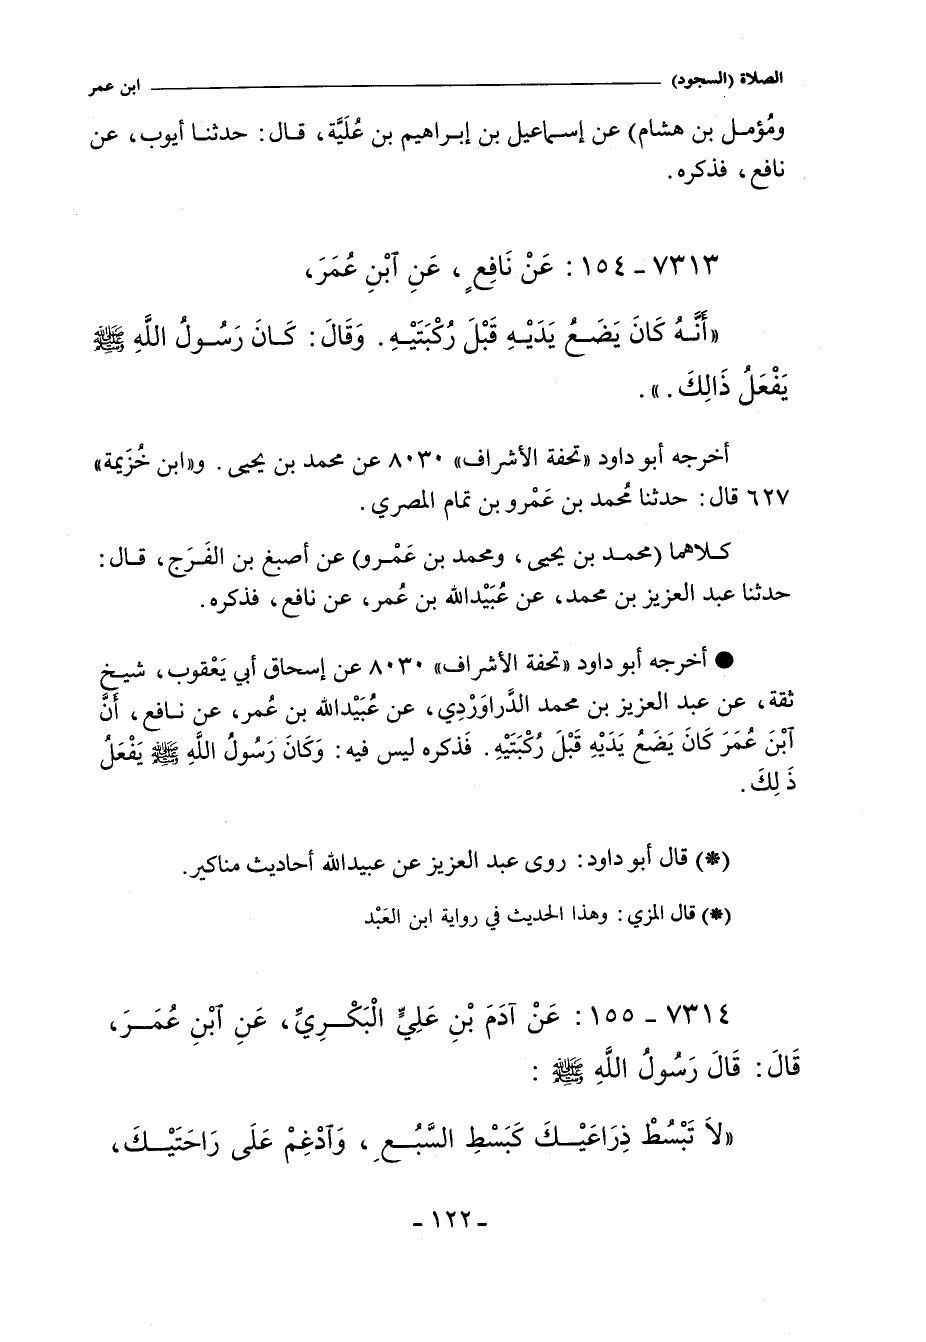 الصلاة (السجود) ابن عمر
ومُؤمل بن هشام) عن إسماعيل بن إبراهيم بن عُلَيَّة، قال: حدثنا أيوب، عن
نافع، فذكره.
٧٣١٣ - ١٥٤: عَنْ نَافِعٍ، عَنِ ٱبْنِ عُمَرَ،
«أَنَّهُ كَانَ يَضَعُ يَدَيْهِ قَبْلَ رُكْبَتَيْهِ. وَقَالَ: كَانَ رَسُولُ اللَّهِ ﷺ
يَفْعَلُ ذَالِكَ.».
أخرجه أبو داود «تحفة الأشراف» ٨٠٣٠ عن محمد بن يحيى. و«ابن خُزَيمة»
٦٢٧ قال: حدثنا مُحمد بن عَمْرو بن تمام المصري.
كلاهما (محمد بن يحيى، ومحمد بن عَمْرو) عن أصبغ بن الفَرَج، قال:
حدثنا عبد العزيز بن محمد، عن عُبَيْدالله بن عُمر، عن نافع، فذكره.
● أخرجه أبو داود «تحفة الأشراف» ٨٠٣٠ عن إسحاق أبي يَعْقوب، شيخ
ثقة، عن عبد العزيز بن محمد الدَّراوَرْدِي، عن عُبَيْدالله بن عُمر، عن نافع، أَنَّ
ٱبْنَ عُمَرَ كَانَ يَضَعُ يَدَيْهِ قَبْلَ رُكْبَتَيْهِ. فَذكره ليس فيه: وَكَانَ رَسُولُ اللَّهِ ﷺ يَفْعَلُ
ذَلِكَ.
(*) قال أبو داود: روى عبد العزيز عن عبيدالله أحاديث مناكير.
(*) قال المزي: وهذا الحديث في رواية ابن العَبْد
٧٣١٤ - ١٥٥: عَنْ آدَمَ بْنِ عَلِيٍّ الْبَكْرِيِّ، عَنِ ٱبْنِ عُمَرَ،
قَالَ: قَالَ رَسُولُ اللَّهِ ﷺ:
«لاَ تَبْسُطْ ذِرَاعَيْكَ كَبَسْطِ السَّبُعِ، وَٱدْغِمْ عَلَى رَاحَتَيْكَ،
- ١٢٢ -